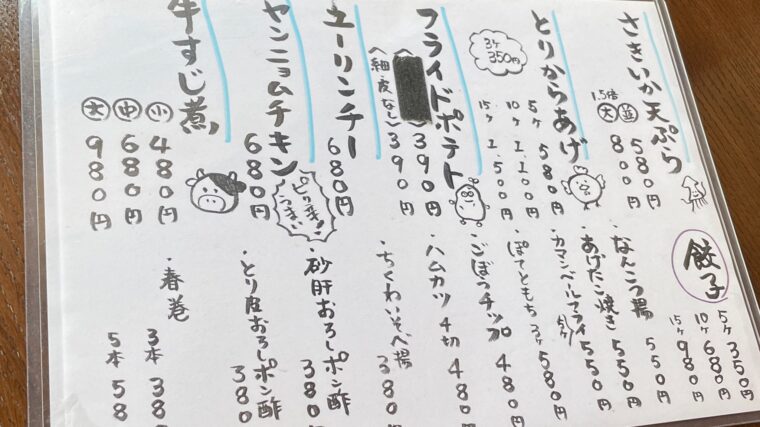 さきいか天ぷら
並 580円
1.5倍 大 800円
とりからあげ
3ケ 350円
5ケ 580円
10ケ 1.100円
15ケ 1.500円
フライドポテト
390円
(細・皮なし) 390円
ユーリンチー
680円
ヤンニョムチキン
680円
ピリ辛!うまい
牛すじ煮
小 480円
中 680円
大 980円
餃子
5ケ 350円
10ケ 680円
15ケ 980円
なんこつ揚 550
・あげたこ焼き 550円
・カマンベールフライ 550円
・ぽてともち 3ケ 580円
・ごぼうチップ 480円
・ハムカツ 4切 480
・ちくわいそべ揚 380円
・砂肝おろしポン酢 380
・とり皮おろしポン酢 380
・春巻
3本 38
5本 58